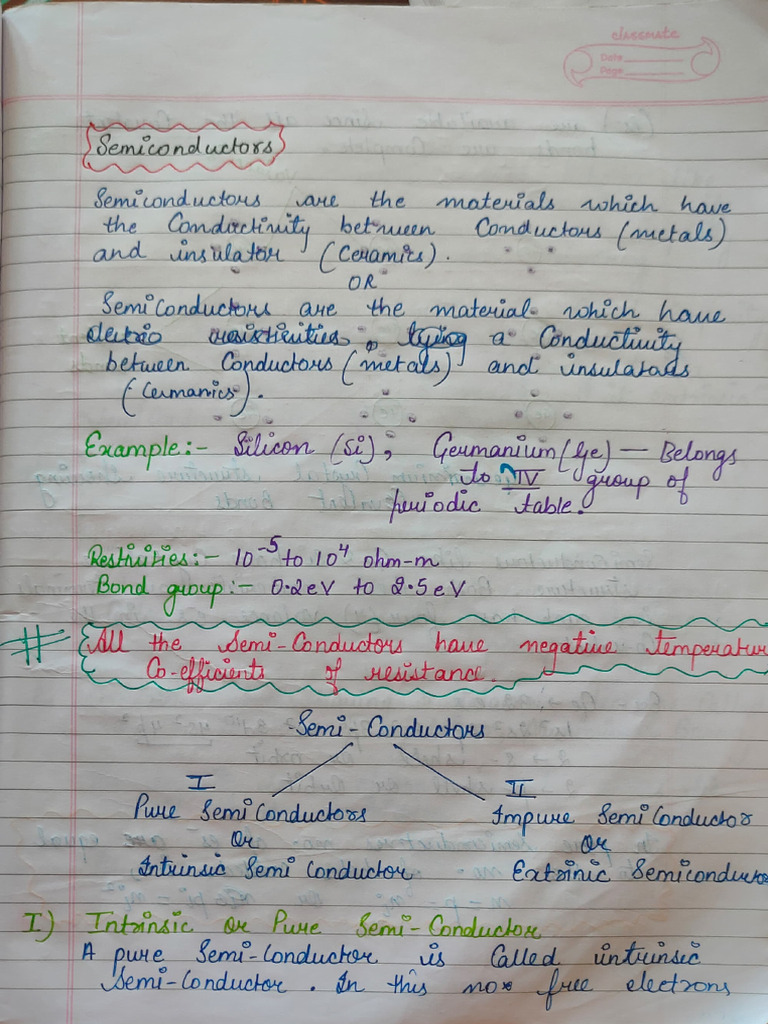 classmate
Date
Page
Semiconductors
Semiconductors are the materials which have
the Conductinity between Conductors (metals)
and insulator (Ceramics).
OR
Semiconductors are the material which have
electric resistivities, lying a Conductinity
between Conductors (metals) and insulators
(Cermanics).
Example:- Silicon (Si), Germanium (Ge) — Belongs
to IV group of
periodic table.
Restivities:- 10⁻⁵ to 10⁴ ohm-m
Bond group:- 0.2eV to 2.5eV
# All the Semi-Conductors have negative temperatur
Co-efficients of resistance.
Semi-Conductors
I II
Pure SemiConductors Impure SemiConductor
Or OR
Intrinsic Semi Conductor Extrinic Semiconductor
I) Intrinsic or Pure Semi-Conductor
A pure Semi-Conductor is Called intrinsic
Semi-Conductor. In this no free electrons